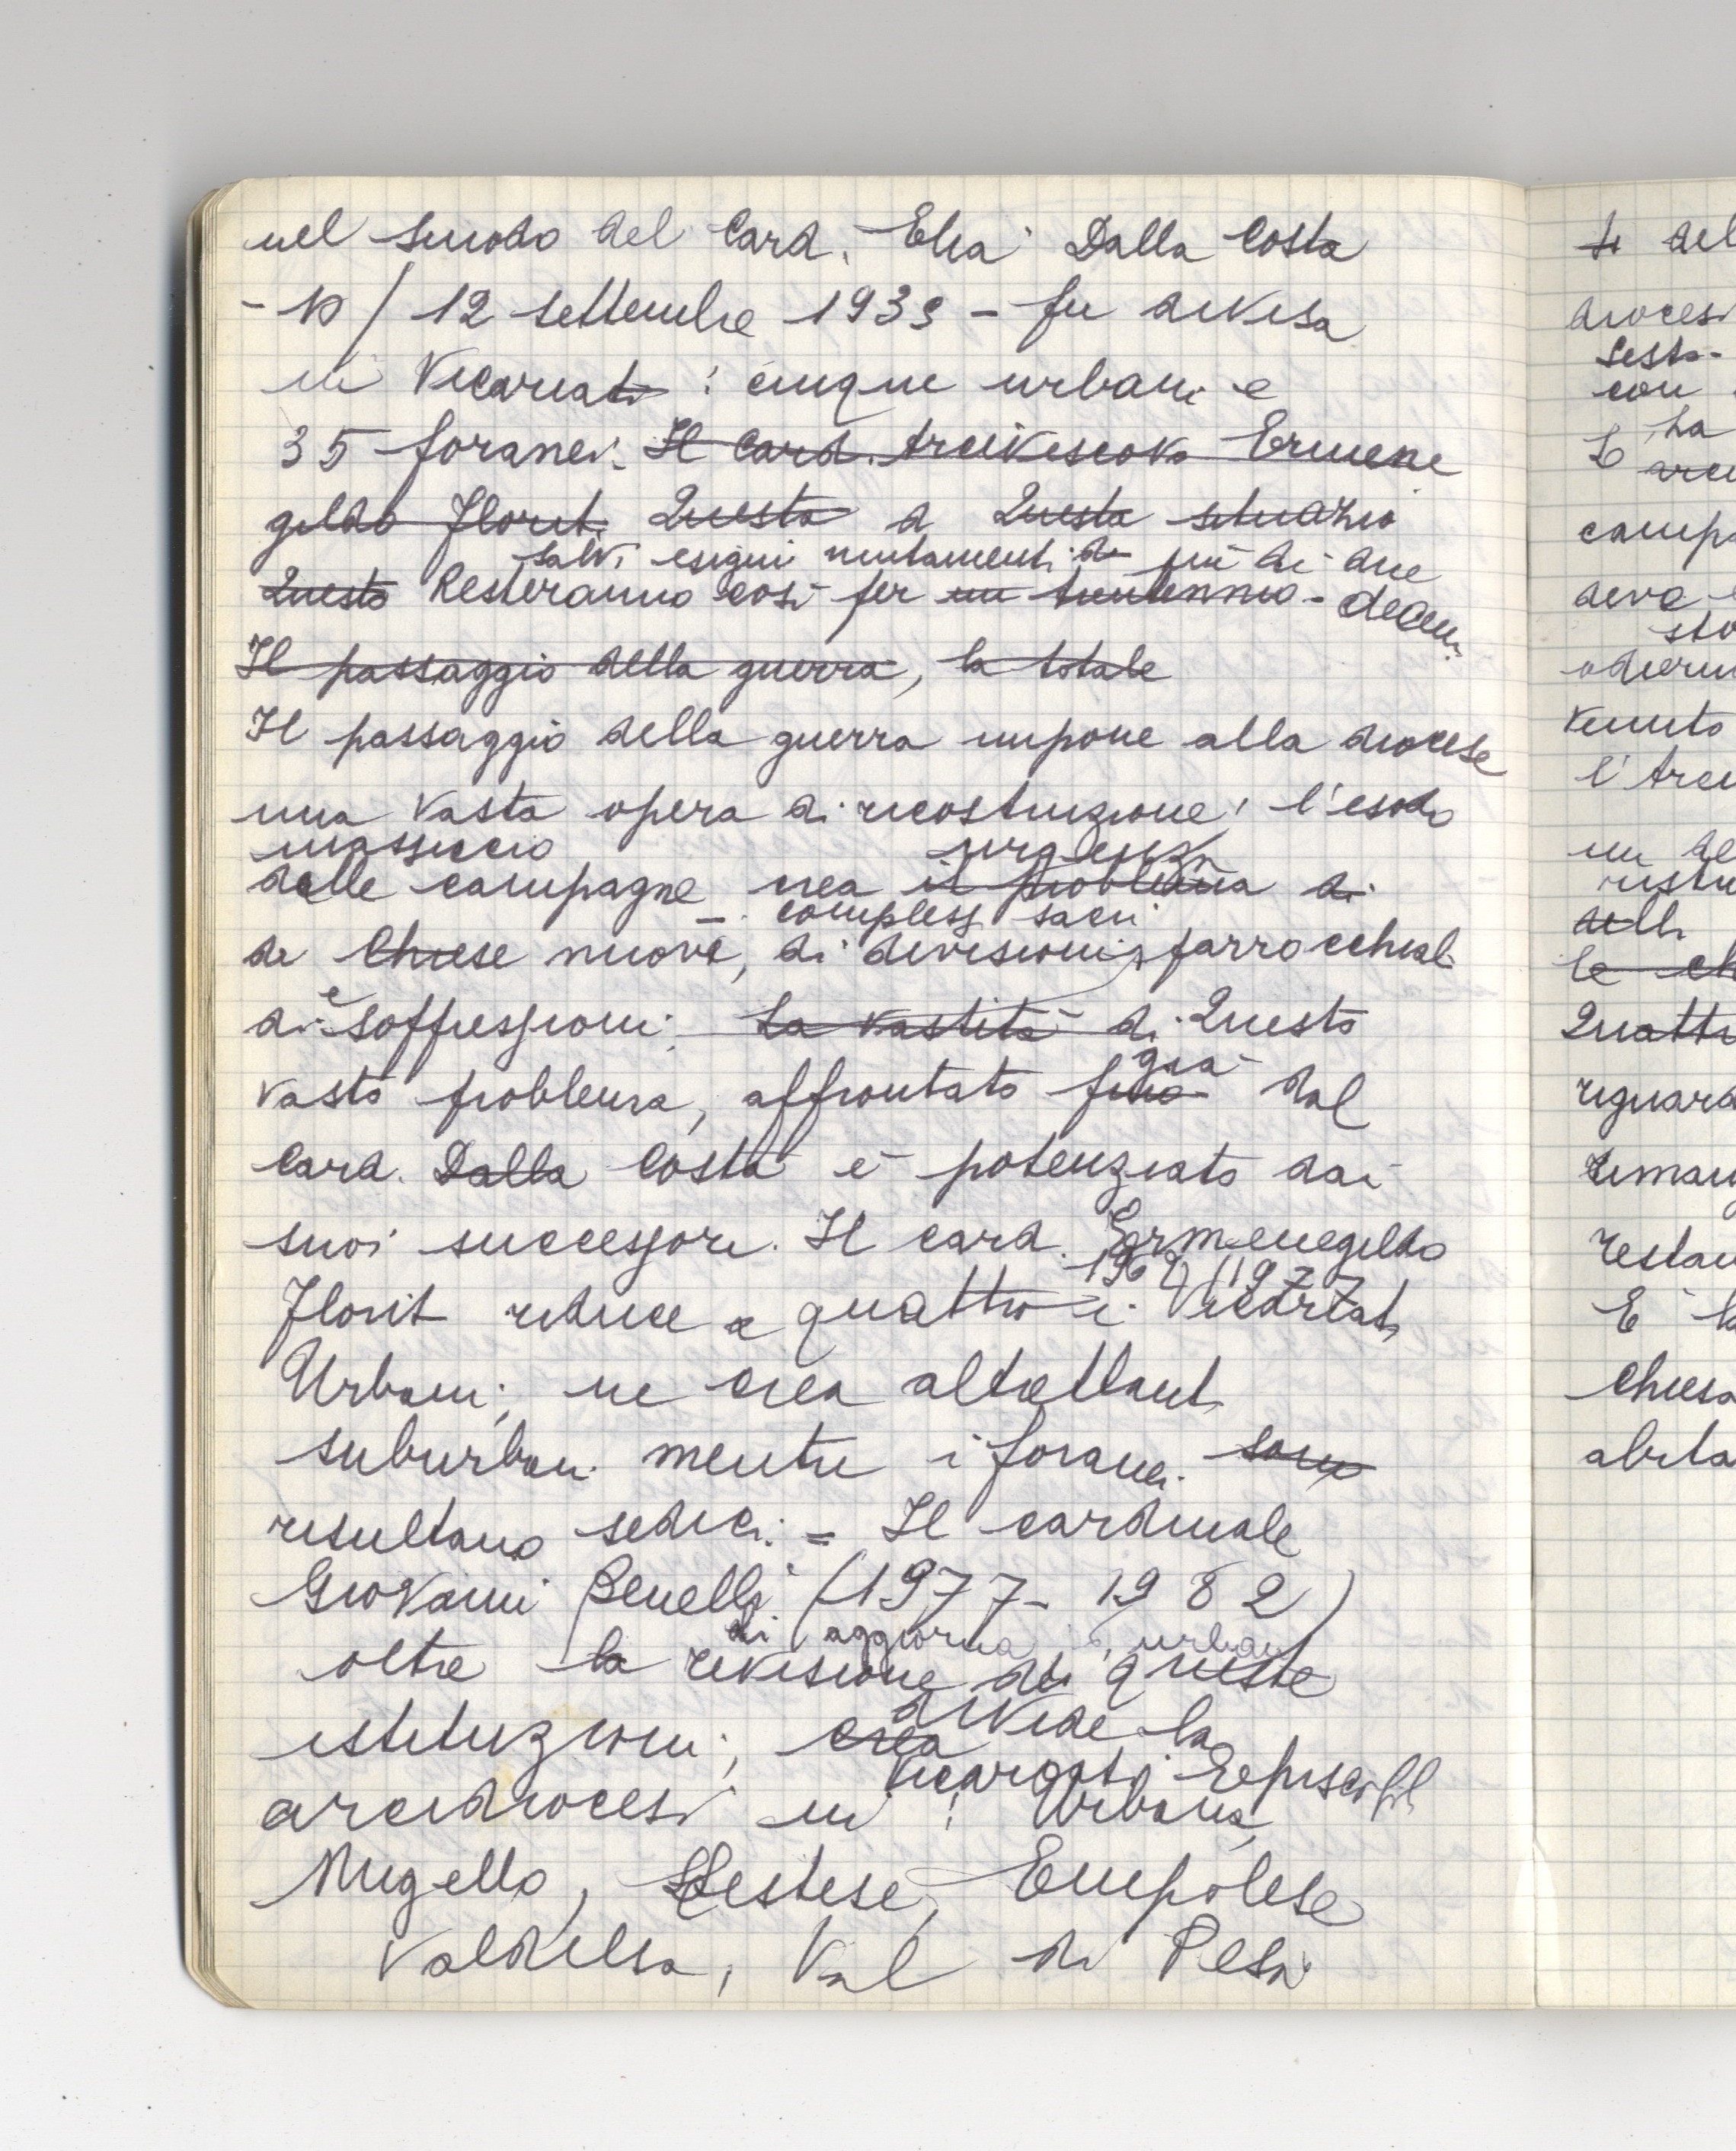 nel Sinodo del Card. Elia Dalla Costa
- 10 / 12 settembre 1939 - fu divisa
in Vicariati : cinque urbani e
35 foranei. Il Card. Arcivescovo Ermene
gildo Florit. Questa a Questa situazio
salvi esigui mutamenti di più di due
Questo Resteranno così per un trentennio - decenni
Il passaggio della guerra, la totale
Il passaggio della guerra impone alla diocese
una vasta opera di ricostruzione; l'esodo
massiccio urgenza
dalle campagne crea il problema di
complessi sacri
di Chiese nuove, di divisioni parrocchiali
e
di soppressioni. La vastità di Questo
già
vasto problema, affrontato fino dal
Card. Dalla Costa è potenziato dai
suoi successori. Il card. Ermenegildo
1962 1977
Florit riduce a quattro i Vicariati
Urbani; ne crea altrettanti
suburbani mentre i foranei sono
risultano sedici. = Il cardinale
Giovanni Benelli (1977-1982)
di aggiorna urbani
oltre la revisione di queste
divide la
istituzioni; crea
Vicariati Episcopali
arcidiocesi in : Urbana,
Mugello, Sestese, Empolese
Valdelsa, Val di Pesa
ti del
diocesi
Sesto-
con
ha
L
camp
deve
sto
odiern
venuto
l'Arci
un de
ristu
delle
le ch
Quattr
riguard
riman
restau
E la
Chiesa
abita